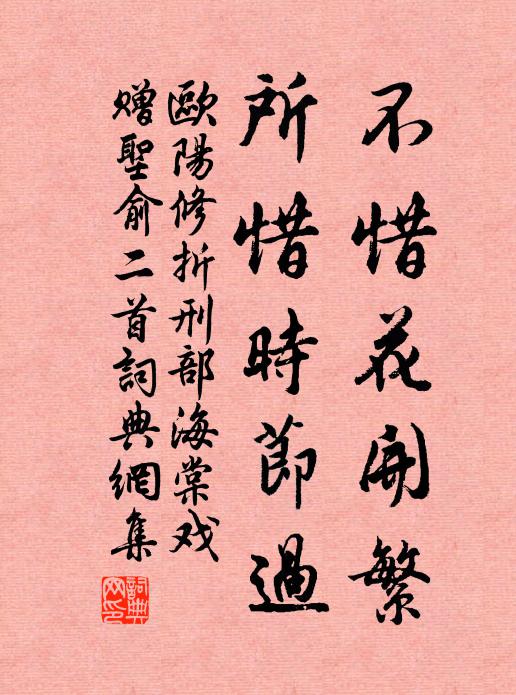 不惜花開繁
所惜時節過
歐陽修折刑部海棠戏
赠聖俞二首詞典網集
詞典网印